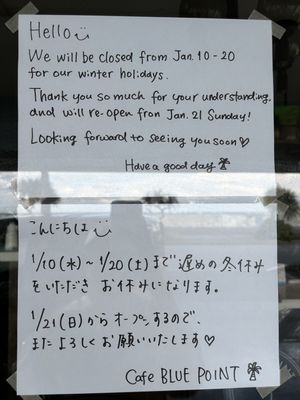 Hello
We will be closed from Jan. 10 - 20
for our winter holidays.
Thank you so much for your understanding,
and will re-open from Jan. 21 Sunday!
Looking forward to seeing you soon♡
Have a good day
こんにちは
1/10(水)~1/20(土)まで遅めの冬休み
をいただき お休みになります。
1/21(日)からオープンするので、
またよろしくお願いいたします♡
Cafe BLUE POINT